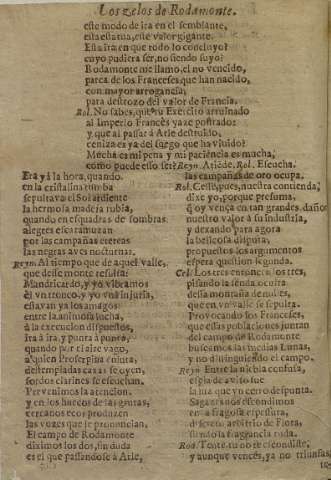 Los zelos de Rodamonte.
este modo de ira en el semblante,
esta estatua, este valor gigante.
Esta ira en que todo lo concluyo?
cuyo pudiera ser, no siendo suyo?
Rodamonte me llamo, el no vencido,
parca de los Franceses, que han nacido,
con mayor arrogancia,
para destrozo del valor de Francia.
Rol. No sabes, que tu Exercito arruinado
al Imperio Francès yaze postrado?
y que al passar à Arle destruido,
ceniza es ya del fuego que ha viuido?
Mucha es mi pena y mi paciencia es mucha,
como puede esso ser? Reyn. Atiéde. Rol. Escucha.
Era ya la hora, quando
en la cristalina tumba
sepultava el Sol ardiente
la hermosa madexa rubia,
quando en esquadras de sombras
alegres escaramuzan
por las campañas etereas
las negras aves nocturnas.
Reyn. Al tiempo que de aquel valle,
que desse monte resulta:
Mandricardo, y yo
él vn tronco, y yo vna injuria,
estavan ya los amagos
entre la animosa lucha,
à la execucion dispuestos,
ira à ira, y punta à punta,
quando por el aire vago,
a quien Proserpina enluta,
destempladas caxas se oyen,
sordos clarines se escuchan.
Prevenimos la atencion,
y en los huecos de las grutas,
cercanos ecos produzen
las vozes que se pronuncian.
El campo de Rodamonte
diximos los dos, sin duda
es el que passandose à Arle,
las campañas de oro ocupa.
Rol. Cesse, pues, nuestra contienda,
dixe yo, porque presuma,
q oy vença en tan grandes daños
nuestro valor à su industria,
y dexando para agora
la belicosa disputa,
propuestos los argumentos
espera question segunda.
Cel. Los tres entonces, los tres,
pisando la senda oculta
dessa montaña
que en vn valle se sepulta.
Provocando los Franceses,
que essas poblaciones juntan
del campo de Rodamonte
buscamos las medias Lunas,
y no distinguiendo el campo.
Reyn. Entre la niebla confusa,
el de aviso fue
la luz que vn cerro despunta.
Sagazes nos escondimos
en la fragosa espessura,
de Flora,
siendo la fragrancia ruda.
Rod. Tente, tu no te escondiste,
y aunque vencès, ya no triunfas,